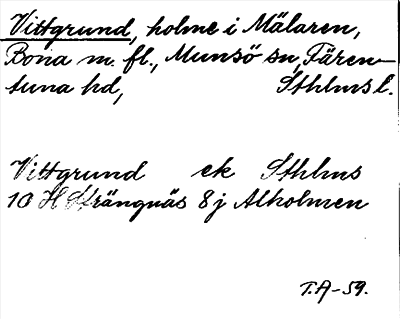 Vittgrund, holme i Mälaren,
Bona m. fl., Munsö sn, Fären-
tuna hd, Sthlms l.
Vittgrund ek Sthlms
10 H Strängnäs 8 j Alholmen
T.A-59.